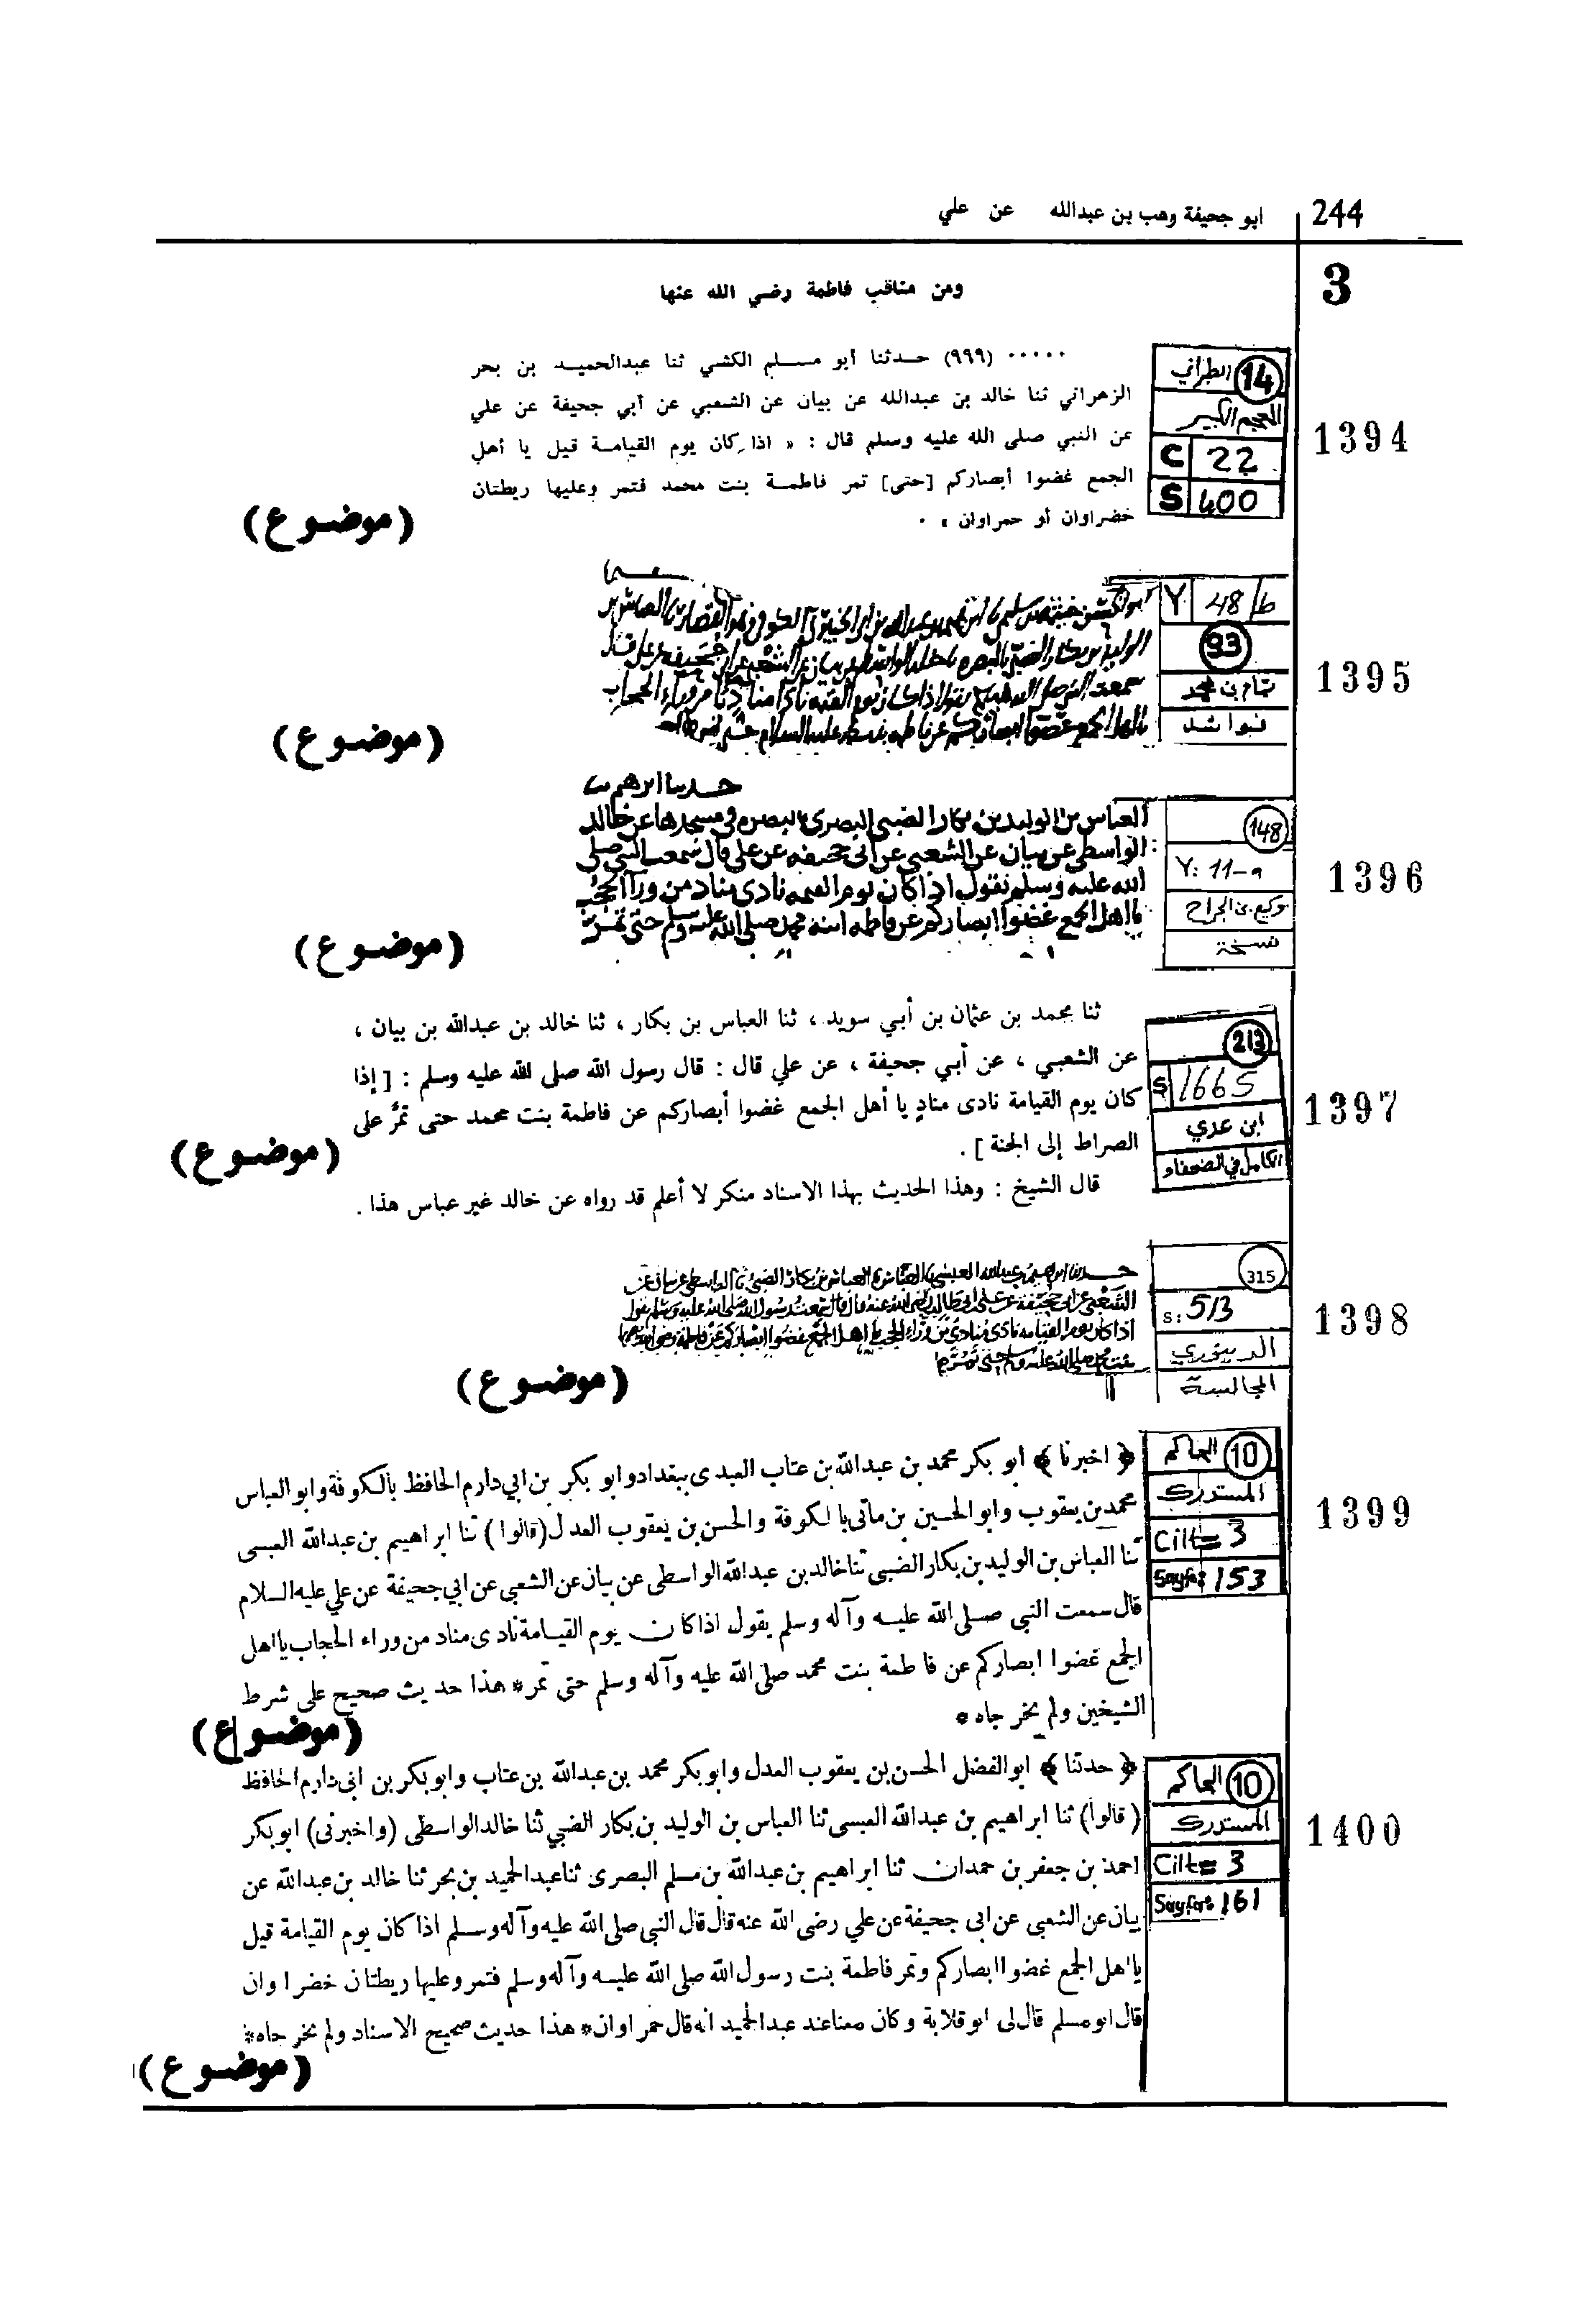 244 ابو جحيفة وهب بن عبدالله عن علي
3
ومن مناقب فاطمة رضي الله عنها
1394
14 الطبراني
المعجم الكبير
C 22
S 400
..... (٩٩٩) حدثنا أبو مسلم الكشي ثنا عبدالحميد بن بحر
الزهراني ثنا خالد بن عبدالله عن بيان عن الشعبي عن أبي جحيفة عن علي
عن النبي صلى الله عليه وسلم قال : « اذا كان يوم القيامة قيل يا أهل
الجمع غضوا أبصاركم [حتى] تمر فاطمة بنت محمد فتمر وعليها ريطتان
خضراوان أو حمراوان » .
(موضوع)
1395
Y 48/b
93
تمام بن محمد
فوائد
سمعت النبي صلى الله عليه وسلم يقول اذا كان يوم القيمة نادى مناد من وراء الحجاب
(موضوع)
1396
148
Y: 11-a
وكيع بن الجراح
نسخة
حدثنا ابرهيم بن
العباس بن الوليد بن بكار الضبي البصري بالبصره في مسجدها عن خالد
الواسطي عن بيان عن الشعبي عن ابي جحيفه عن علي قال سمعت النبي صلى
الله عليه وسلم يقول اذا كان يوم القيمه نادى مناد من ورآ الحجب
يا اهل الجمع غضوا ابصاركم عن فاطمه ابنه محمد صلى الله عليه وسلم حتى تمر
(موضوع)
1397
213
S 1665
ابن عدي
الكامل في الضعفاء
ثنا محمد بن عثمان بن أبي سويد ، ثنا العباس بن بكار ، ثنا خالد بن عبدالله بن بيان ،
عن الشعبي ، عن أبي جحيفة ، عن علي قال : قال رسول الله صلى الله عليه وسلم : [ إذا
كان يوم القيامة نادى مناد يا أهل الجمع غضوا أبصاركم عن فاطمة بنت محمد حتى تمرَّ على
الصراط إلى الجنة ] .
قال الشيخ : وهذا الحديث بهذا الاسناد منكر لا أعلم قد رواه عن خالد غير عباس هذا .
(موضوع)
1398
315
s: 513
الدينوري
المجالسة
الشعبي عن ابي جحيفة عن علي بن ابي طالب رضي الله عنه قال قال سمعت رسول الله صلى الله عليه وسلم يقول
(موضوع)
1399
10 الحاكم
المستدرك
Cilt= 3
Sayfa: 153
﴿ اخبرنا ﴾ ابو بكر محمد بن عبدالله بن عتاب العبدى ببغداد وابو بكر بن ابي دارم الحافظ بالكوفة وابو العباس
محمد بن يعقوب وابو الحسين بن ماتى بالكوفة والحسن بن يعقوب العدل (قالوا) ثنا ابراهيم بن عبدالله العبسى
ثنا العباس بن الوليد بن بكار الضبي ثنا خالد بن عبدالله الواسطى عن بيان عن الشعبي عن ابي جحيفة عن علي عليه السلام
قال سمعت النبي صلى الله عليه وآله وسلم يقول اذا كان يوم القيامة نادى مناد من وراء الحجاب يا اهل
الجمع غضوا ابصاركم عن فاطمة بنت محمد صلى الله عليه وآله وسلم حتى تمر * هذا حديث صحيح على شرط
الشيخين ولم يخرجاه *
(موضوع)
1400
10 الحاكم
المستدرك
Cilt= 3
Sayfa: 161
﴿ حدثنا ﴾ ابو الفضل الحسن بن يعقوب العدل وابو بكر محمد بن عبدالله بن عتاب وابو بكر بن ابى دارم الحافظ
( قالوا ) ثنا ابراهيم بن عبدالله العبسى ثنا العباس بن الوليد بن بكار الضبي ثنا خالد الواسطى (واخبرنى) ابو بكر
احمد بن جعفر بن حمدان ثنا ابراهيم بن عبدالله بن مسلم البصرى ثنا عبد الحميد بن بحر ثنا خالد بن عبدالله عن
بيان عن الشعبى عن ابى جحيفة عن علي رضى الله عنه قال قال النبي صلى الله عليه وآله وسلم اذا كان يوم القيامة قيل
يا اهل الجمع غضوا ابصاركم وتمر فاطمة بنت رسول الله صلى الله عليه وآله وسلم فتمر وعليها ريطتان خضراوان
قال ابو مسلم قال لى ابو قلابة وكان معنا عند عبد الحميد انه قال حمراوان * هذا حديث صحيح الاسناد ولم يخرجاه *
(موضوع)